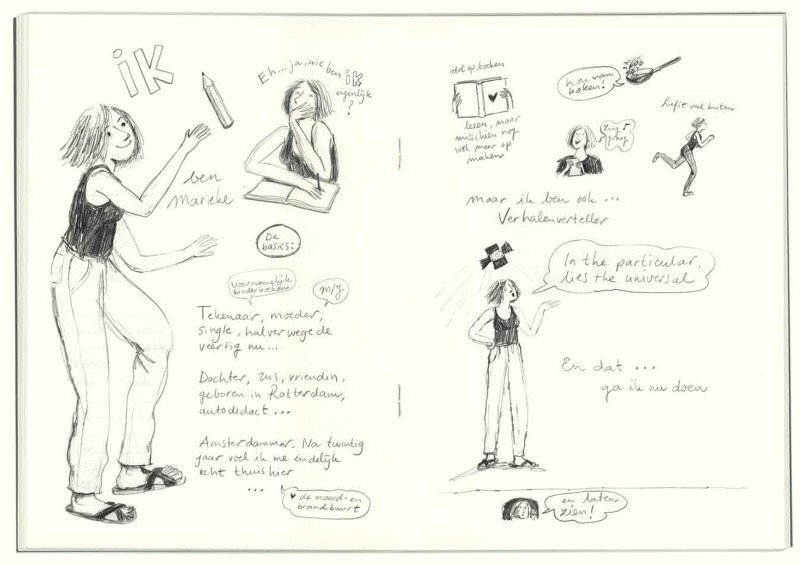 ik
ben
Marieke
Eh... ja, wie ben ik
eigenlijk
?
De
basics:
voornamelijk
kinderboeken
m/j
Tekenaar, moeder,
single, halverwege de
veertig nu...
Dochter, zus, vriendin,
geboren in Rotterdam,
autodidact...
Amsterdammer. Na twintig
jaar voel ik me eindelijk
echt thuis hier
...
♥ de moord- en
brandbuurt
dol op boeken
lezen, maar
misschien nog
wel meer op
maken
hou van
koken!
zing ♪
graag
liefst veel buiten
maar ik ben ook ...
Verhalenverteller
In the particular,
lies the universal
En dat ...
ga ik nu doen
en laten
zien!